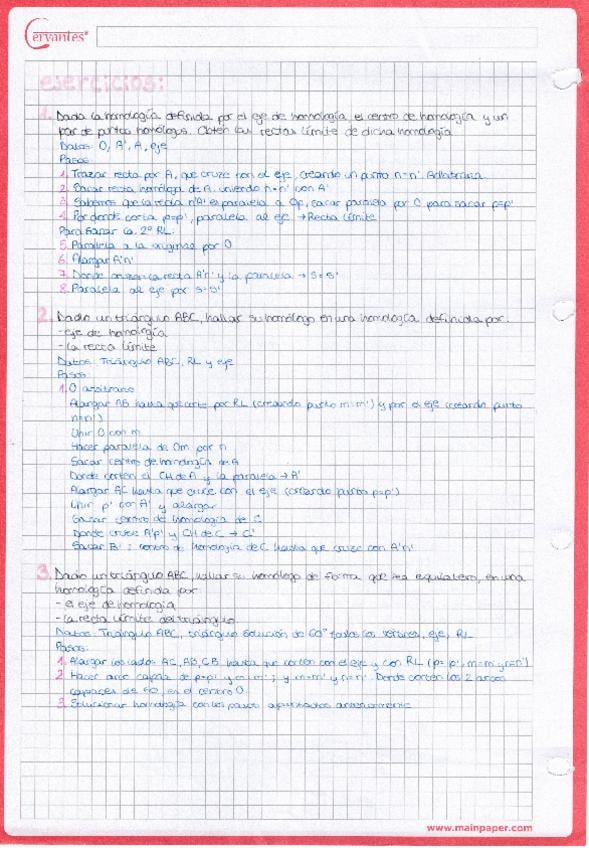 Cervantes
ejercicios:
1. Dada la homología definida por el eje de homología, el centro de homología y un
par de puntos homólogos. Obtén las rectas límite de dicha homología
Datos: O, A', A, eje
Pasos:
1. Trazar recta por A, que cruze con el eje, creando un punto n=n'. Arbitraria
2. Sacar recta homóloga de A uniendo n=n' con A'
3. Sabemos que la recta n'A' es paralela a Op, sacar paralela por O para sacar p=p'
4. Por donde corta p=p', paralela al eje → Recta límite
Para sacar la 2º RL:
5. Paralela a la original por O
6. Alargar A'n'
7. Donde cruzan la recta A'n' y la paralela → s=s'
8. Paralela al eje por s=s'
2. Dado un triángulo ABC, hallar su homólogo en una homología definida por:
- eje de homología
- la recta límite
Datos: Triángulo ABC, RL y eje
Pasos:
1. O arbitrario
Alargar AB hasta que corte por RL (creando punto m=m') y por el eje (creando punto
n=n')
Unir O con m
Hacer paralela de Om por n
Sacar centro de homología de A
Donde corten el CH de A y la paralela → A'
Alargar AC hasta que cruce con el eje (creando punto p=p')
Unir p' con A' y alargar
Sacar centro de homología de C
Donde cruce A'p' y CH de C → C'
Sacar B': centro de homología de C hasta que cruze con A'n'
3. Dado un triángulo ABC, hallar su homólogo de forma que sea equilátero, en una
homología definida por:
- el eje de homología
- la recta límite del triángulo
Datos: Triángulo ABC, triángulo solución de 60° todos los vértices, eje, RL
Pasos:
1. Alargar los lados AC, AB, CB hasta que corten con el eje y con RL (p=p', m=m' y n=n')
2. Hacer arco capaz de p=p' y m=m'; y m=m' y n=n'. Donde corten los 2 arcos
capaces de 60, es el centro O.
3. Solucionar homología con los pasos apuntados anteriormente
www.mainpaper.com